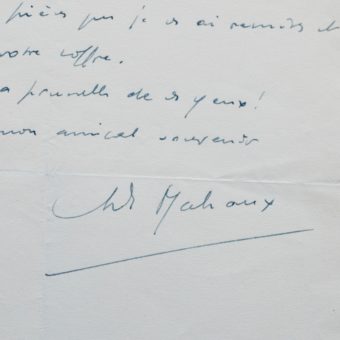 pièces que je vs ai remises et
votre coffre.
a prunelle de vs yeux!
mon amical souvenir
And Malraux